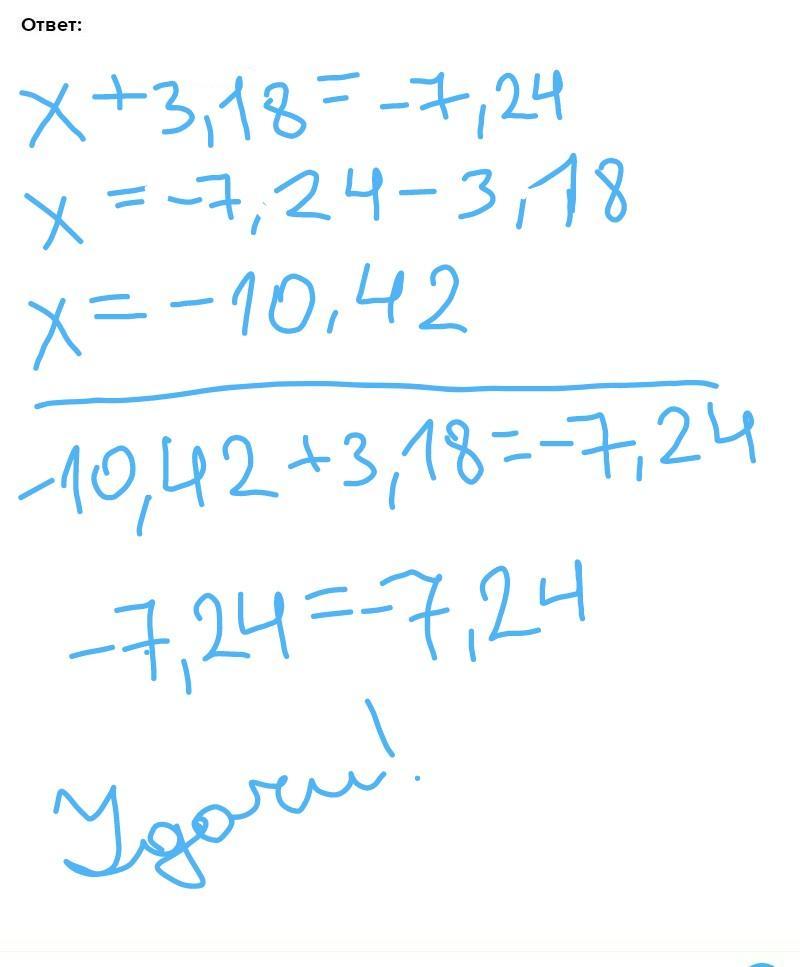 Ответ:
x + 3,18 = -7,24
x = -7,24 - 3,18
x = -10,42
-10,42 + 3,18 = -7,24
-7,24 = -7,24
Удачи!